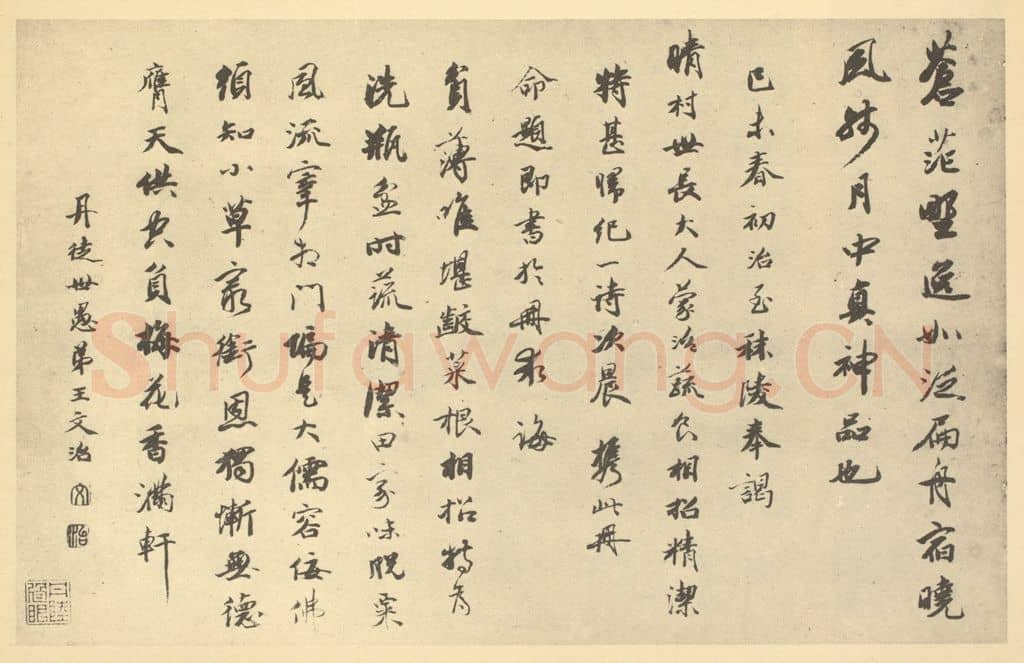 蒼茫野逕如泛扁舟宿曉
風殘月中真神品也
己未春初治至秣陵奉謁
晴村世長大人蒙治蔬食相招精潔
特甚歸紀一詩次晨攜此冊
命題即書於冊求誨
貧薄唯堪齩菜根相招特為
洗瓶盆時蔬清潔田家味脫粟
風流宰相門偏是大儒容佞佛
須知小草銜恩獨慚無德
膺天供只負梅花香滿軒
丹徒世愚弟王文治
文
治
Shufawang.CN